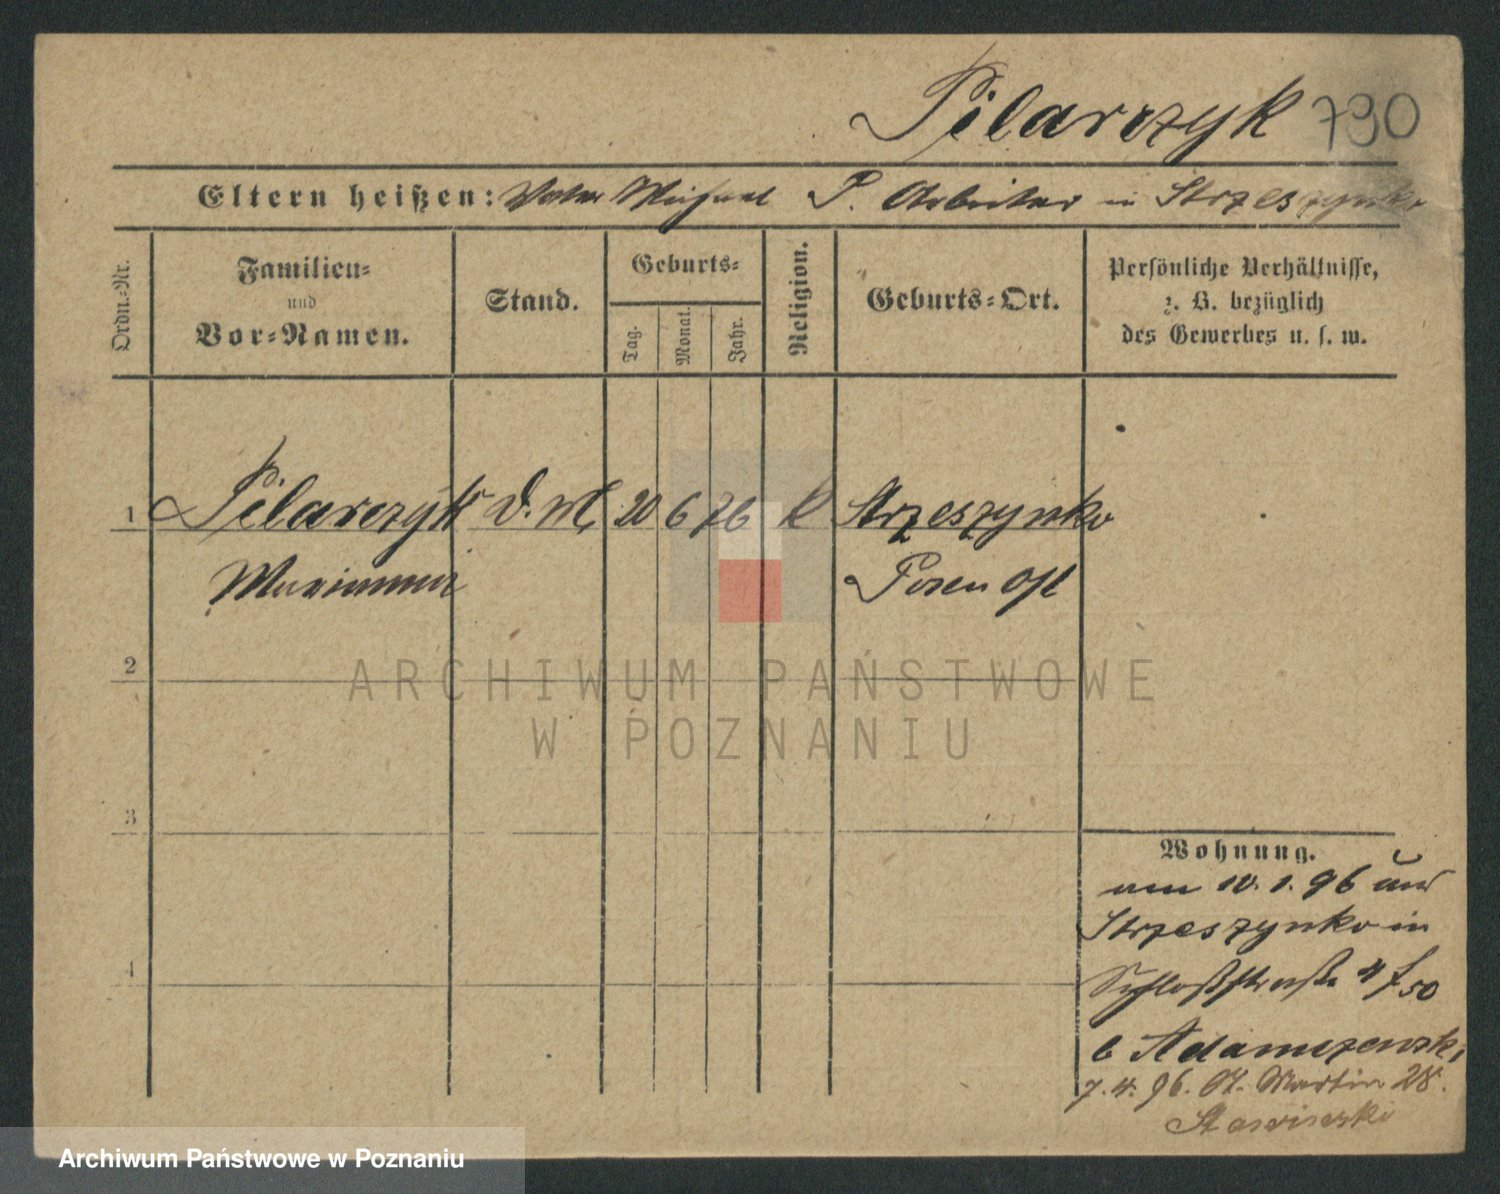 Pilarczyk 790
Eltern heißen: Vater Michael P. Arbeiter in Strzeszynko
Ordn.-Nr.
Familien-
und
Vor-Namen.
Stand.
Geburts-
Tag.
Monat.
Jahr.
Religion.
Geburts-Ort.
Persönliche Verhältnisse,
z. B. bezüglich
des Gewerbes u. s. w.
1 Pilarczyk 20 6 76 k Strzeszynko
Marianna Posen Ost
2
ARCHIWUM PAŃSTWOWE
W POZNANIU
3
Wohnung.
am 10. 1. 96 aus
Strzeszynko in
4
Schloßstraße 4
b Adamczewski
7. 4. 96. St. Martin 28.
Archiwum Państwowe w Poznaniu